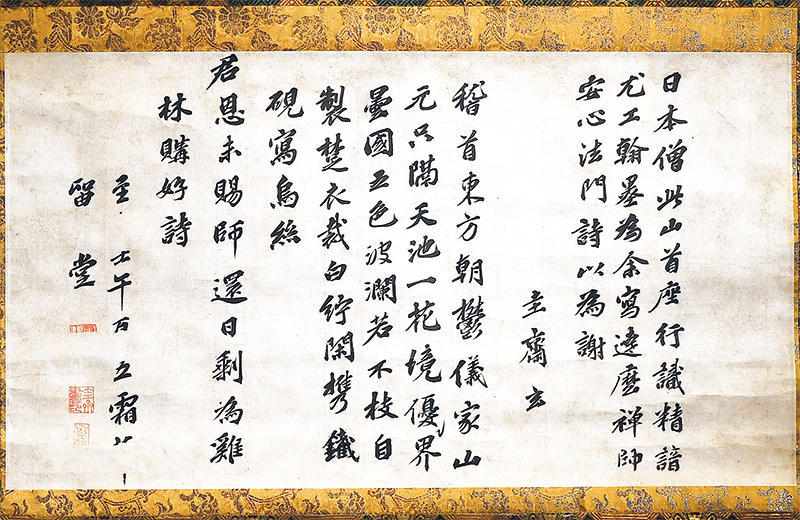 日本僧此山首座行識精諳
尤工翰墨為余寫達麼禪師
安心法門詩以為謝
圭齋玄
稽首東方朝鬱儀家山
元只隔天池一花境優界
曇國五色波瀾若不枝自
製楚衣裁白紵閑携鐵
硯寫烏絲
君恩未賜師還日剩為雞
林購好詩
至 午 五霜
留堂